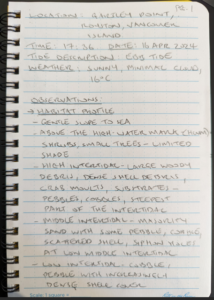 PG. 1
LOCATION: POINT,
VANCOUVER
ISLAND
TIME: 17:36 DATE: 16 APR 2024
TIDE DESCRIPTION: EBB TIDE
WEATHER: SUNNY, MINIMAL CLOUD,
16°C
OBSERVATIONS:
HABITAT PROFILE
- GENTLE SLOPE TO SEA
- ABOVE THE HIGH WATER MARK
SHRUBS, SMALL TREES - LIMITED
SHADE
- HIGH INTERTIDAL - LARGE WOODY
DEBRIS, DENSE SHELL DEBRIS,
CRAB MOULTS, SUBSTRATE -
PEBBLES, COBBLES, STEEPEST
PART OF THE INTERTIDAL
- MIDDLE INTERTIDAL - MAJORITY
SAND WITH SOME PEBBLE, COBBLE,
SCATTERED SHELL, SIPHON HOLES
AT LOW MIDDLE INTERTIDAL
- LOW INTERTIDAL - COBBLE,
PEBBLE WITH
DENSE SHELL COVER